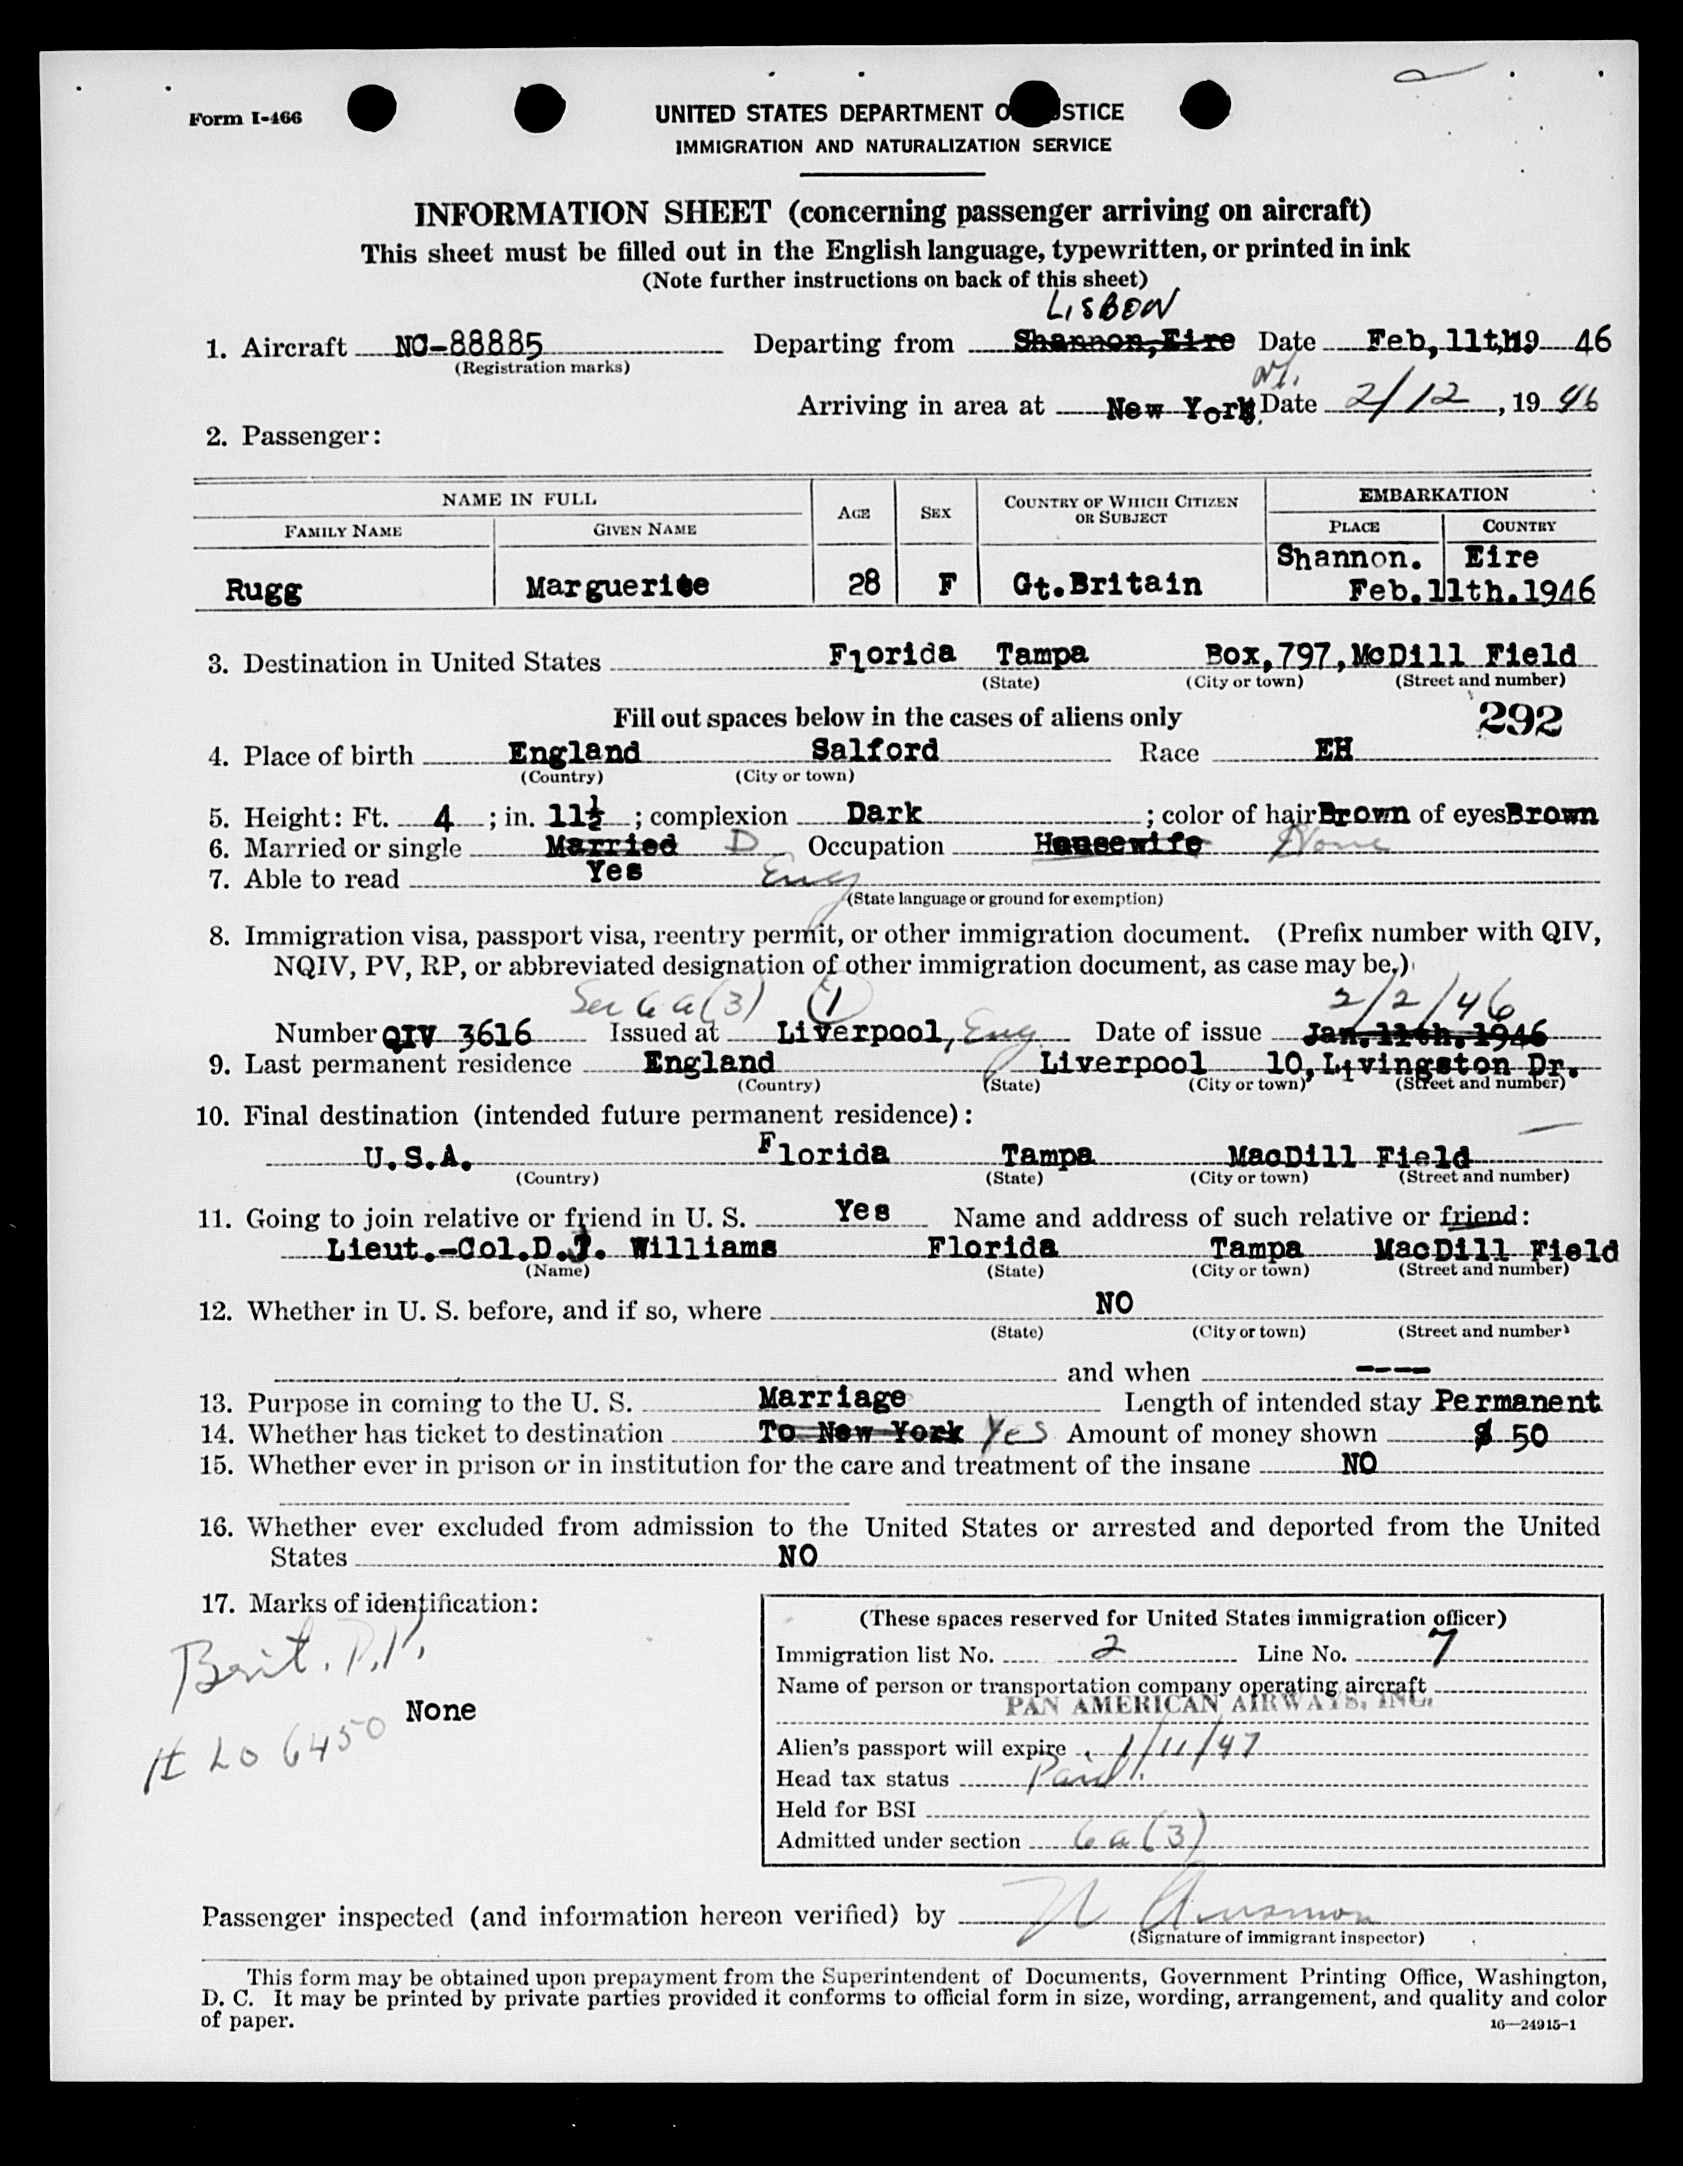 Form I-466
UNITED STATES DEPARTMENT O STICE
IMMIGRATION AND NATURALIZATION SERVICE
INFORMATION SHEET (concerning passenger arriving on aircraft)
This sheet must be filled out in the English language, typewritten, or printed in ink
(Note further instructions on back of this sheet)
LISBON
1. Aircraft NC-88885 Departing from Shannon, Eire Date Feb, 11th, 19 46
(Registration marks)
Arriving in area at New York. Date 2/12, 19 46
2. Passenger:
NAME IN FULL AGE SEX COUNTRY OF WHICH CITIZEN OR SUBJECT EMBARKATION
FAMILY NAME GIVEN NAME PLACE COUNTRY
Shannon. Eire
Rugg Marguerite 28 F Gt.Britain Feb.11th.1946
3. Destination in United States Florida Tampa Box,797,McDill Field
(State) (City or town) (Street and number)
Fill out spaces below in the cases of aliens only 292
4. Place of birth England Salford Race EH
(Country) (City or town)
5. Height: Ft. 4 ; in. 11½ ; complexion Dark ; color of hair Brown of eyes Brown
6. Married or single Married D Occupation Housewife None
7. Able to read Yes Eng
(State language or ground for exemption)
8. Immigration visa, passport visa, reentry permit, or other immigration document. (Prefix number with QIV,
NQIV, PV, RP, or abbreviated designation of other immigration document, as case may be.)
Sec 6 a(3) (1) 2/2/46
Number QIV 3616 Issued at Liverpool, Eng Date of issue Jan. 11th. 1946
9. Last permanent residence England Liverpool 10, Livingston Dr.
(Country) (State) (City or town) (Street and number)
10. Final destination (intended future permanent residence):
U.S.A. Florida Tampa MacDill Field
(Country) (State) (City or town) (Street and number)
11. Going to join relative or friend in U. S. Yes Name and address of such relative or friend:
Lieut.-Col.D.J. Williams Florida Tampa MacDill Field
(Name) (State) (City or town) (Street and number)
12. Whether in U. S. before, and if so, where NO
(State) (City or town) (Street and number)
and when ----
13. Purpose in coming to the U. S. Marriage Length of intended stay Permanent
14. Whether has ticket to destination To New York Yes Amount of money shown $ 50
15. Whether ever in prison or in institution for the care and treatment of the insane NO
16. Whether ever excluded from admission to the United States or arrested and deported from the United
States NO
17. Marks of identification:
Brit. P.P.
None
# LO 6450
(These spaces reserved for United States immigration officer)
Immigration list No. 2 Line No. 7
Name of person or transportation company operating aircraft
PAN AMERICAN AIRWAYS, INC.
Alien's passport will expire 1/11/47
Head tax status Paid
Held for BSI
Admitted under section 6 a (3)
Passenger inspected (and information hereon verified) by
(Signature of immigrant inspector)
This form may be obtained upon prepayment from the Superintendent of Documents, Government Printing Office, Washington,
D. C. It may be printed by private parties provided it conforms to official form in size, wording, arrangement, and quality and color
of paper.
16—24915-1